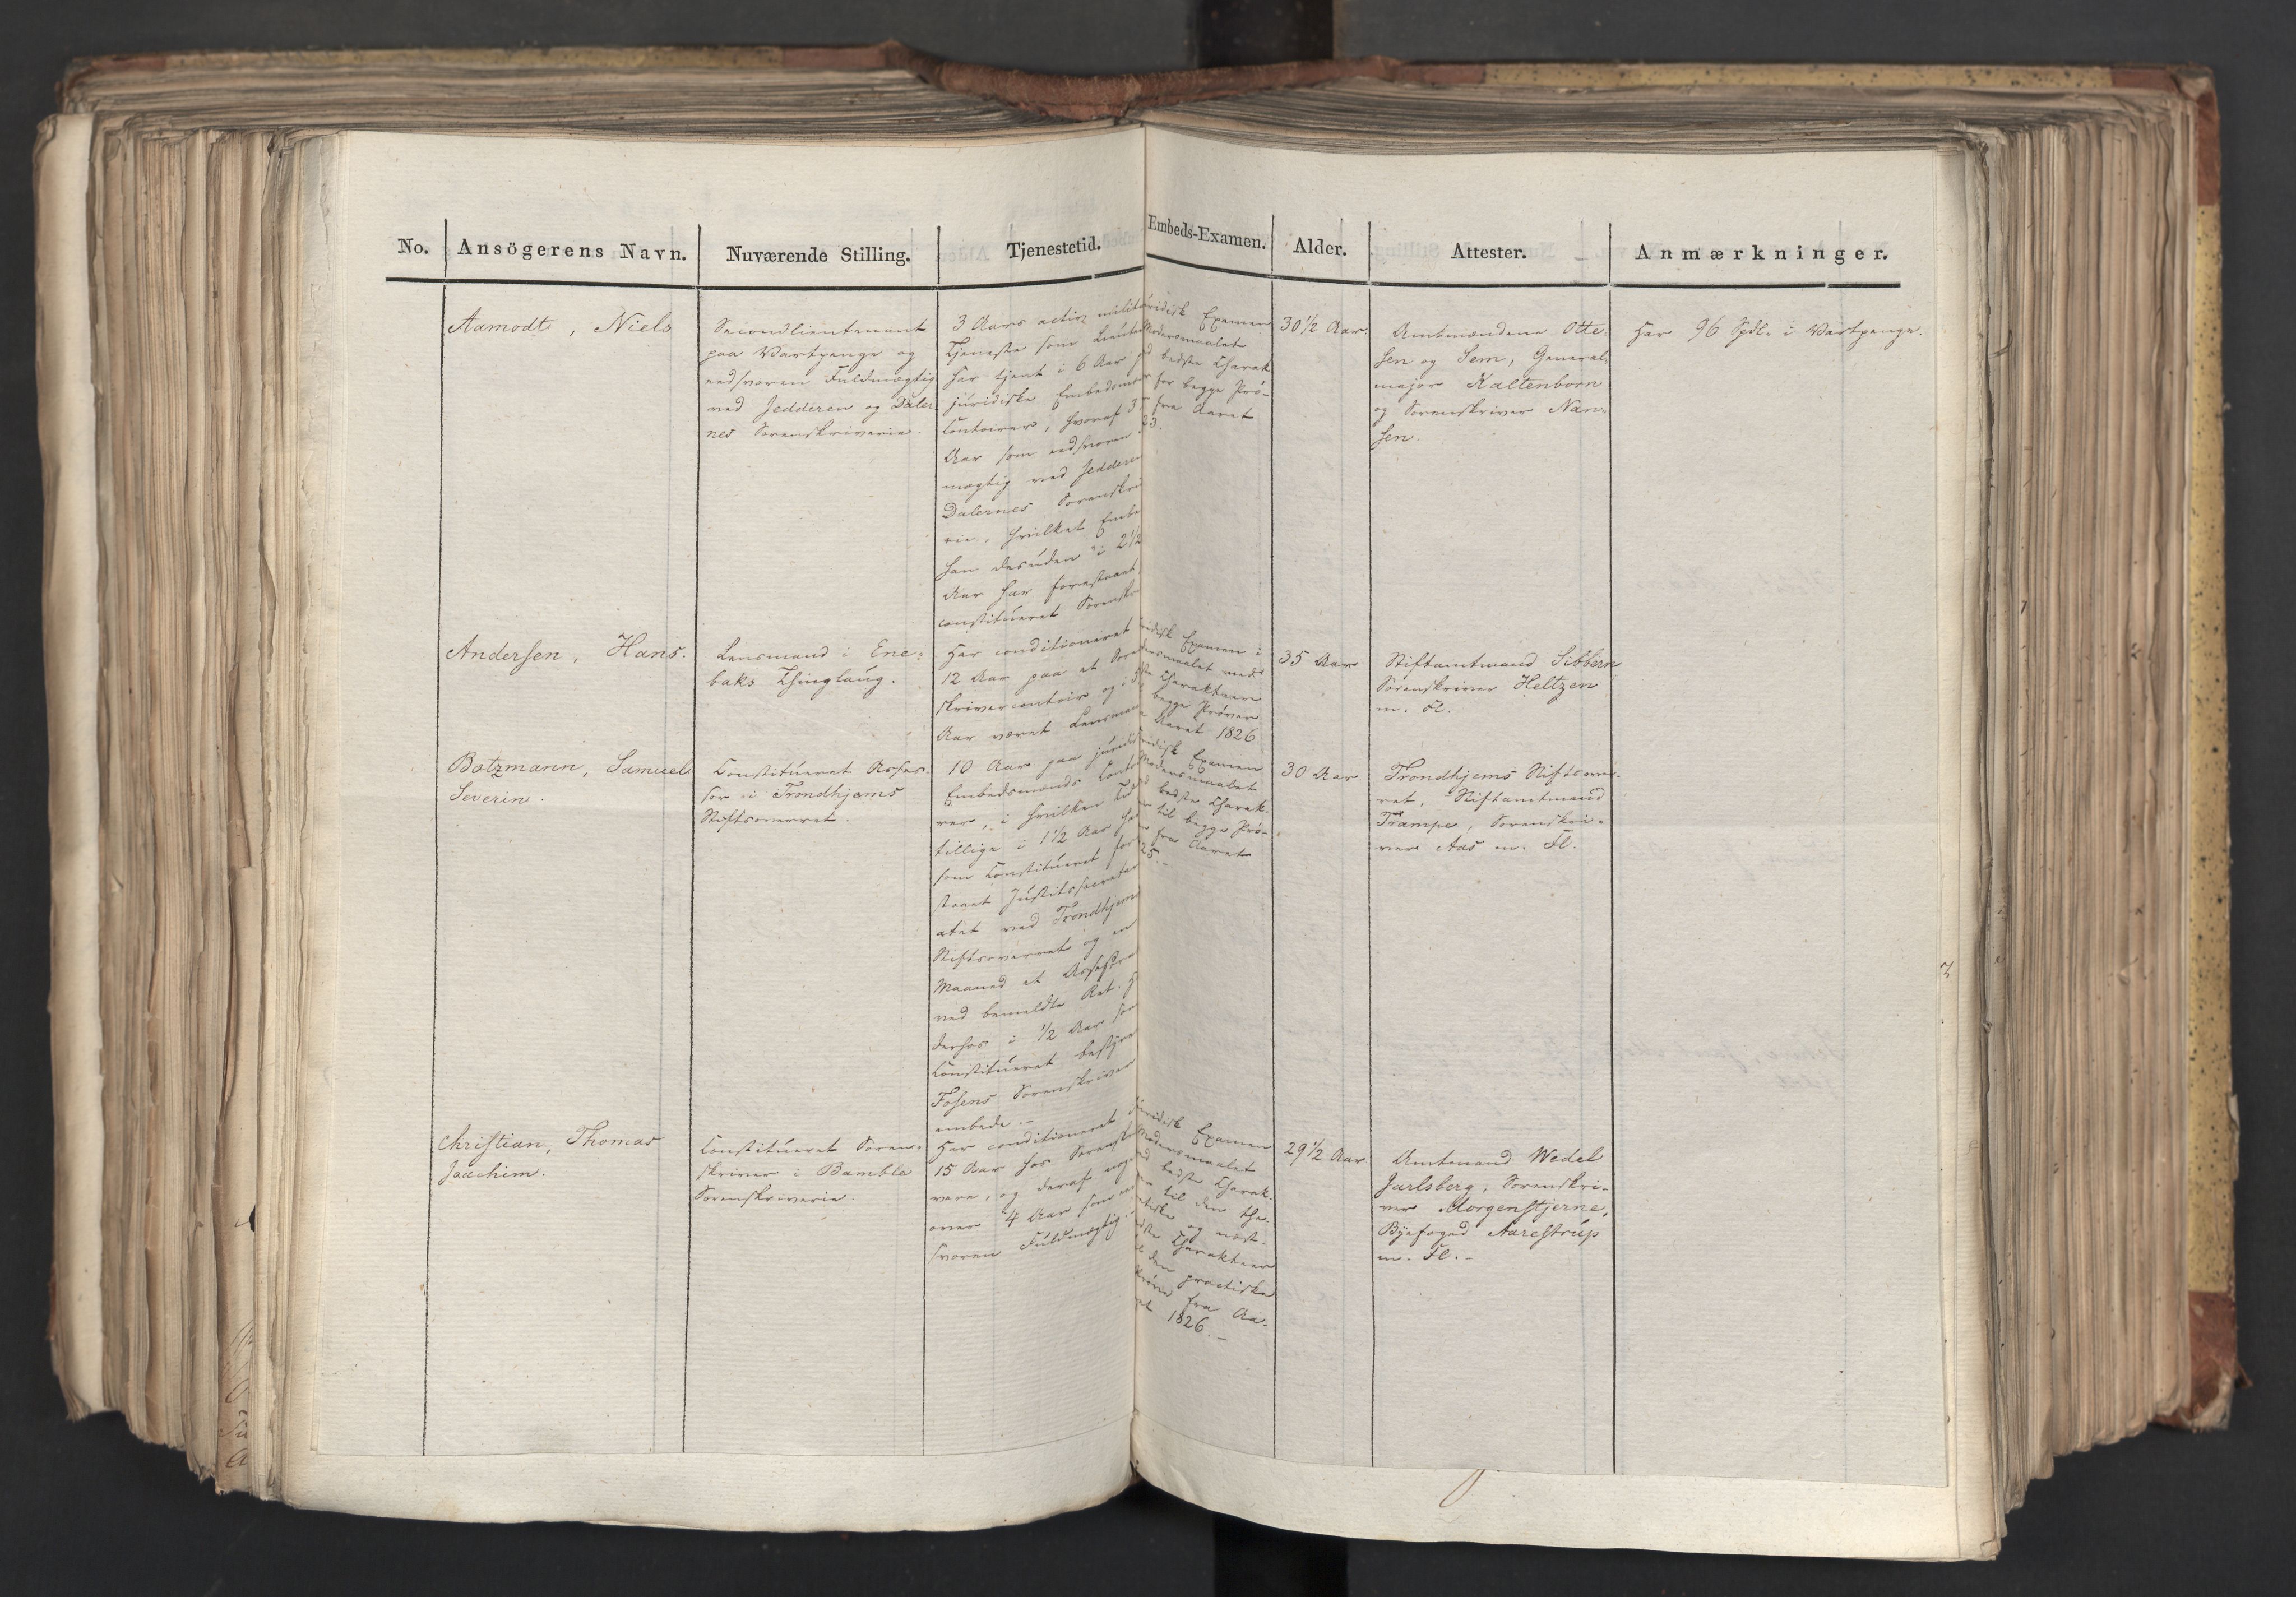 No. Ansögerens Navn. Nuværende Stilling. Tjenestetid. Embeds-Examen. Alder. Attester. Anmærkninger.
Aamodt, Niels
Secondlieutenant
paa Vartpenge og
edsvoren Fuldmægtig
ved Jedderen og Daler
nes Sorenskriverie.
3 Aars activ milit
Tjeneste som Lieute
har tjent i 6 Aar
juridiske Embedsm
Contoirer, hvoraf 3
Aar som edsvoren
mægtig ved Jedderen
Dalernes Sorenskri
rie, hvilket Embe
han desuden i 2 1/2
Aar har forestaaet
constitueret Sorensk
ridisk Examen
Modersmaalet
d bedste Charak
r for begge Prö-
fra Aaret
23.
30 1/2 Aar.
Amtmændene Otte-
sen og Sem, General-
major Kaltenborn
og Sorenskriver Nan-
sen.
Har 96 Spdl. i Vartpenge.
Andersen, Hans.
Lensmand i Ene-
baks Thinglaug.
Har conditioneret
12 Aar paa et Soren
skrivercontoir og i
Aar været Lensman
ridisk Examen i
dersmaalet med
dste Charakteer
begge Pröver
Aaret 1826.
35 Aar
Stiftamtmand Sibbern
Sorenskriver Heltzen
m. Fl.
Botzmann, Samuel
Severin.
Constitueret Asses-
sor i Trondhjems
Stiftsoverret.
10 Aar paa juridis
Embedsmænds Conto
rer, i hvilken Tid
tillige i 1 1/2 Aar ha
som Constitueret fore
staaet Justitssecretar
atet ved Trondhjems
Stiftsoverret og en
Maaned et Assessor
ved bemeldte Ret. H
derhos i 1/2 Aar som
Constitueret bestyre
Fosens Sorenskriver
embede.-
ridisk Examen
Modersmaalet
d bedste Charak-
r til begge Prö-
fra Aaret
25.-
30 Aar.
Trondhjems Stiftsover-
ret, Stiftamtmand
Trampe, Sorenskri-
ver Aas m. Fl.
Christian, Thomas
Joachim.
Constitueret Soren-
skriver i Bamble
Sorenskriverie.
Har conditioneret i
15 Aar hos Sorenskri
vere, og deraf noget
over 4 Aar som ed
svoren Fuldmægtig.-
ridisk Examen
Modersmaalet
d bedste Charak-
r til den the-
retiske og næst-
dste Charakteer
l den practiske
Pröve fra Aa-
et 1826.-
29 1/2 Aar
Amtmand Wedel
Jarlsberg, Sorenskri-
ver Morgenstjerne,
Byefoged Aarestrup
m. Fl.-